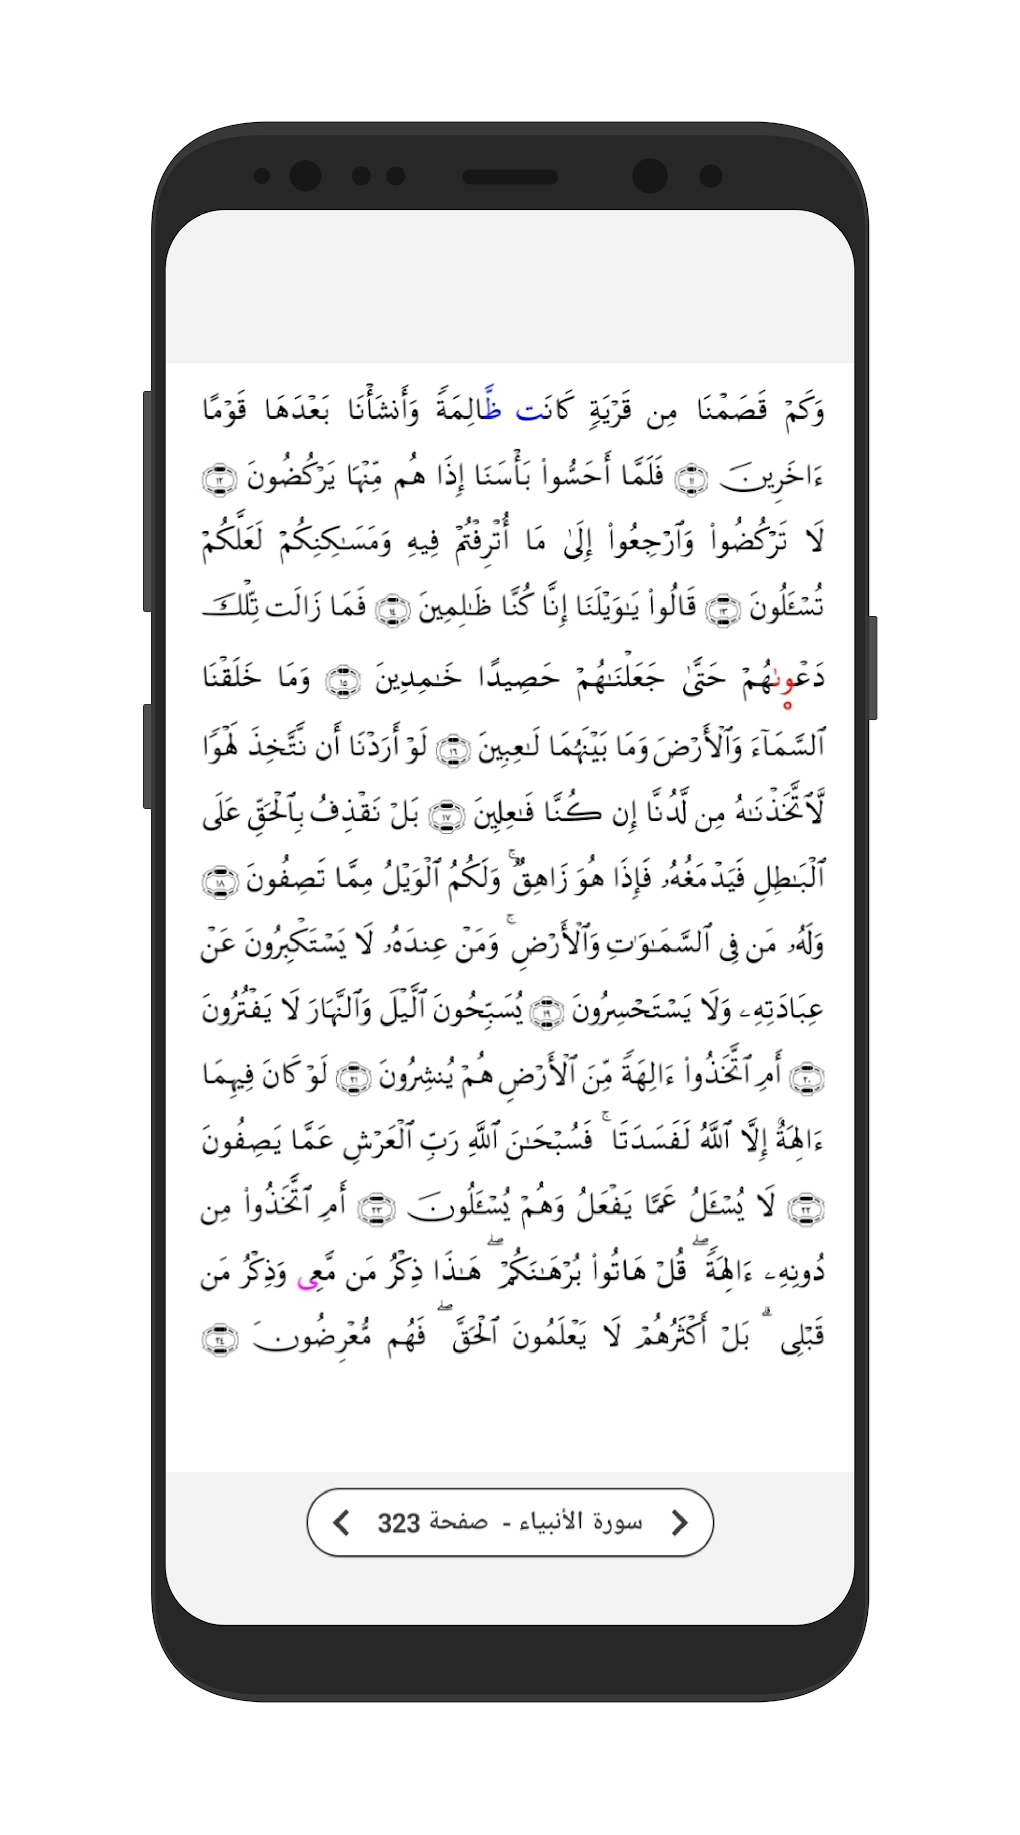 وَكَمْ قَصَمْنَا مِن قَرْيَةٍ كَانَت ظَّالِمَةً وَأَنشَأْنَا بَعْدَهَا قَوْمًا
ءَاخَرِينَ ١١ فَلَمَّا أَحَسُّوا۟ بَأْسَنَا إِذَا هُم مِّنْهَا يَرْكُضُونَ ١٢
لَا تَرْكُضُوا۟ وَٱرْجِعُوٓا۟ إِلَىٰ مَا أُتْرِفْتُمْ فِيهِ وَمَسَـٰكِنِكُمْ لَعَلَّكُمْ
تُسْـَٔلُونَ ١٣ قَالُوا۟ يَـٰوَيْلَنَا إِنَّا كُنَّا ظَـٰلِمِينَ ١٤ فَمَا زَالَت تِّلْكَ
دَعْوٜىٰهُمْ حَتَّىٰ جَعَلْنَـٰهُمْ حَصِيدًا خَـٰمِدِينَ ١٥ وَمَا خَلَقْنَا
ٱلسَّمَآءَ وَٱلْأَرْضَ وَمَا بَيْنَهُمَا لَـٰعِبِينَ ١٦ لَوْ أَرَدْنَا أَن نَّتَّخِذَ لَهْوًا
لَّٱتَّخَذْنَـٰهُ مِن لَّدُنَّا إِن كُنَّا فَـٰعِلِينَ ١٧ بَلْ نَقْذِفُ بِٱلْحَقِّ عَلَى
ٱلْبَـٰطِلِ فَيَدْمَغُهُۥ فَإِذَا هُوَ زَاهِقٌ ۚ وَلَكُمُ ٱلْوَيْلُ مِمَّا تَصِفُونَ ١٨
وَلَهُۥ مَن فِى ٱلسَّمَـٰوَٰتِ وَٱلْأَرْضِ ۚ وَمَنْ عِندَهُۥ لَا يَسْتَكْبِرُونَ عَنْ
عِبَادَتِهِۦ وَلَا يَسْتَحْسِرُونَ ١٩ يُسَبِّحُونَ ٱلَّيْلَ وَٱلنَّهَارَ لَا يَفْتُرُونَ
٢٠ أَمِ ٱتَّخَذُوا۟ ءَالِهَةً مِّنَ ٱلْأَرْضِ هُمْ يُنشِرُونَ ٢١ لَوْ كَانَ فِيهِمَا
ءَالِهَةٌ إِلَّا ٱللَّهُ لَفَسَدَتَا ۚ فَسُبْحَـٰنَ ٱللَّهِ رَبِّ ٱلْعَرْشِ عَمَّا يَصِفُونَ
٢٢ لَا يُسْـَٔلُ عَمَّا يَفْعَلُ وَهُمْ يُسْـَٔلُونَ ٢٣ أَمِ ٱتَّخَذُوا۟ مِن
دُونِهِۦ ءَالِهَةً ۖ قُلْ هَاتُوا۟ بُرْهَـٰنَكُمْ ۖ هَـٰذَا ذِكْرُ مَن مَّعِى وَذِكْرُ مَن
قَبْلِى ۗ بَلْ أَكْثَرُهُمْ لَا يَعْلَمُونَ ٱلْحَقَّ ۖ فَهُم مُّعْرِضُونَ ٢٤
سورة الأنبياء - صفحة 323